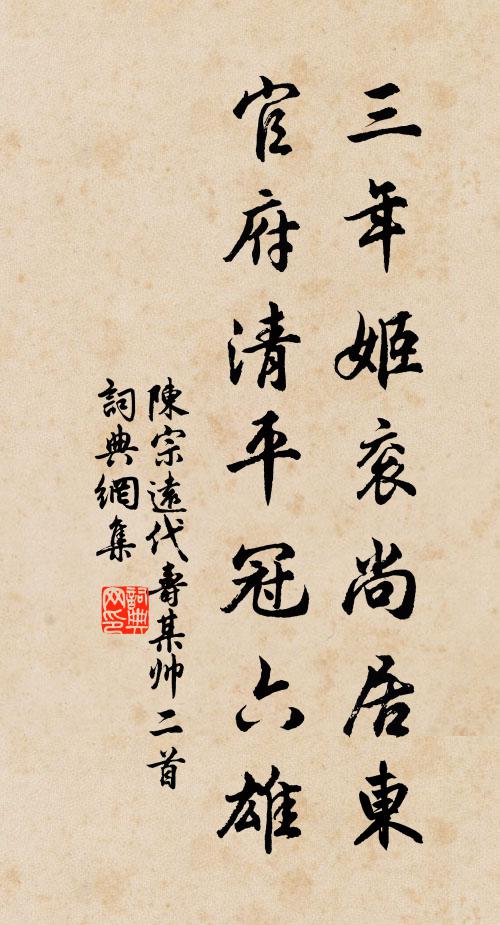 三年姬衮尚居東
官府清平冠六雄
陳宗遠代壽某帅二首
詞典網集
詞典网印